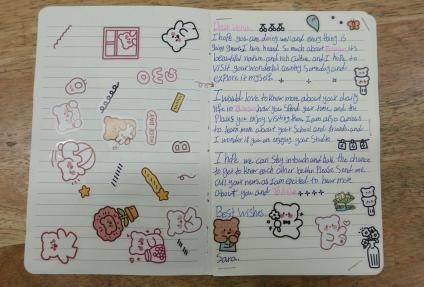 OMG
NICE DAY
B
Dear
I hope you are doing well and everything is
going great. I have heard so much about
beautiful nature and rich culture, and I hope to
visit your wonderful country someday and
explore it myself.
I would love to know more about your daily
life in how you spend your time, and the
places you enjoy visiting there. I am also curious
to learn more about your school and friends, and
I wonder if you are enjoying your studies
I hope we can stay in touch and have the chance
to get to know each other better. Please send me
all your news as I am excited to hear more
about you and
Best Wishes,
Sara.